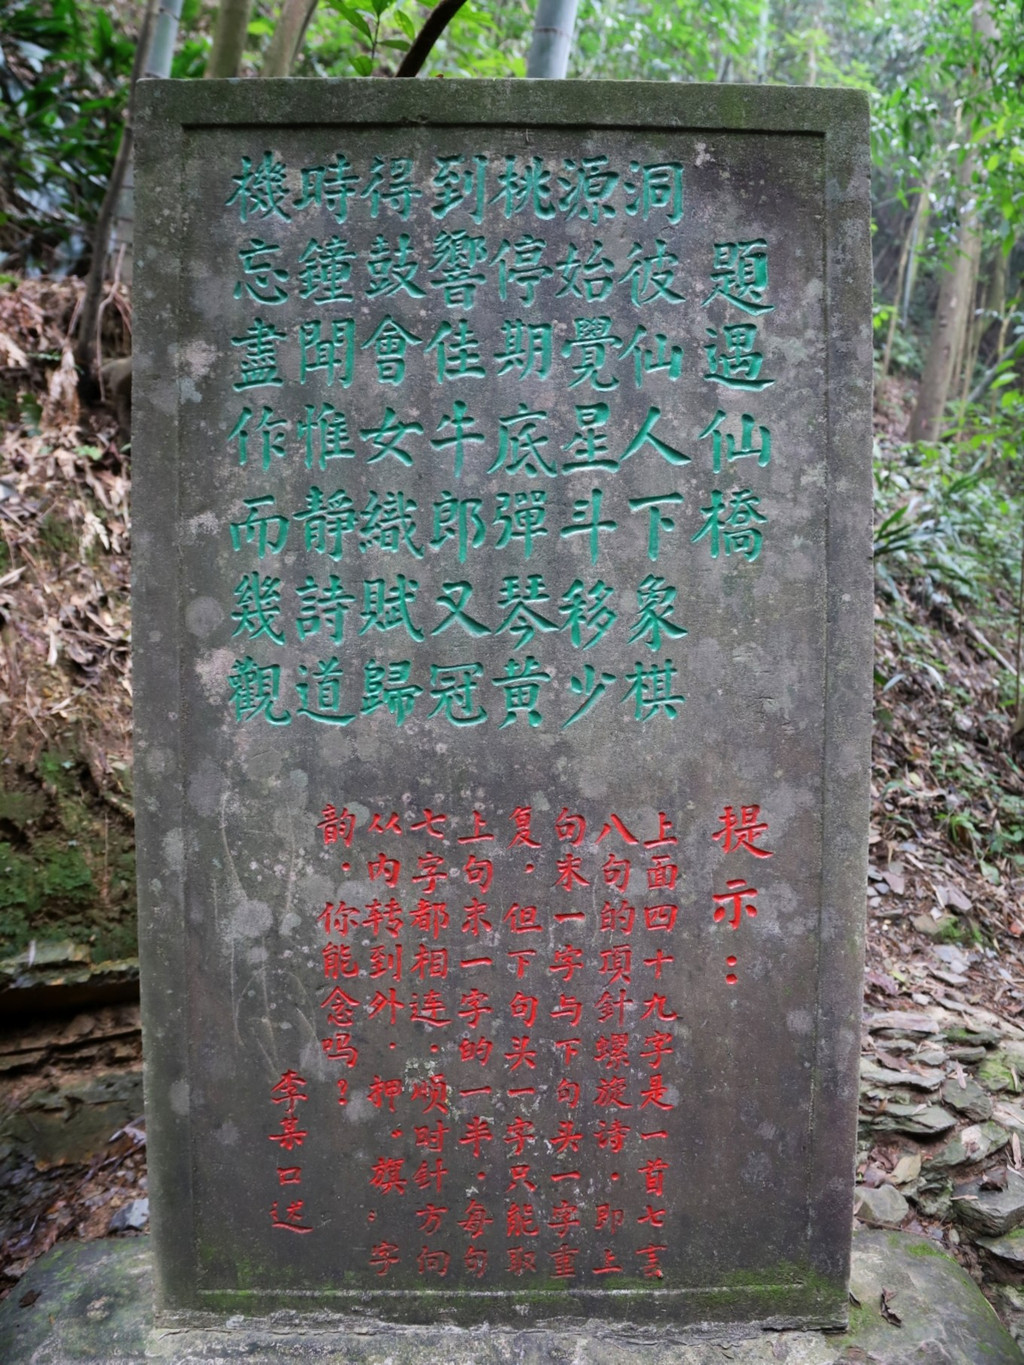 題遇仙橋
洞彼仙人下象棋
源始覺星斗移少
桃停期底彈琴黄
到響佳牛郎又冠
得鼓會女織賦歸
時鐘聞惟靜詩道
機忘盡作而幾觀
提示：
上面四十九字是一首七言
八句的項針螺旋诗．即上
句末一字与下句头一字重
复，但下句头一字只能取
上句末一字的一半．每句
七字都相连．顺时针方向
从内转到外．押“旗”字
韵．你能念吗？
李某口述